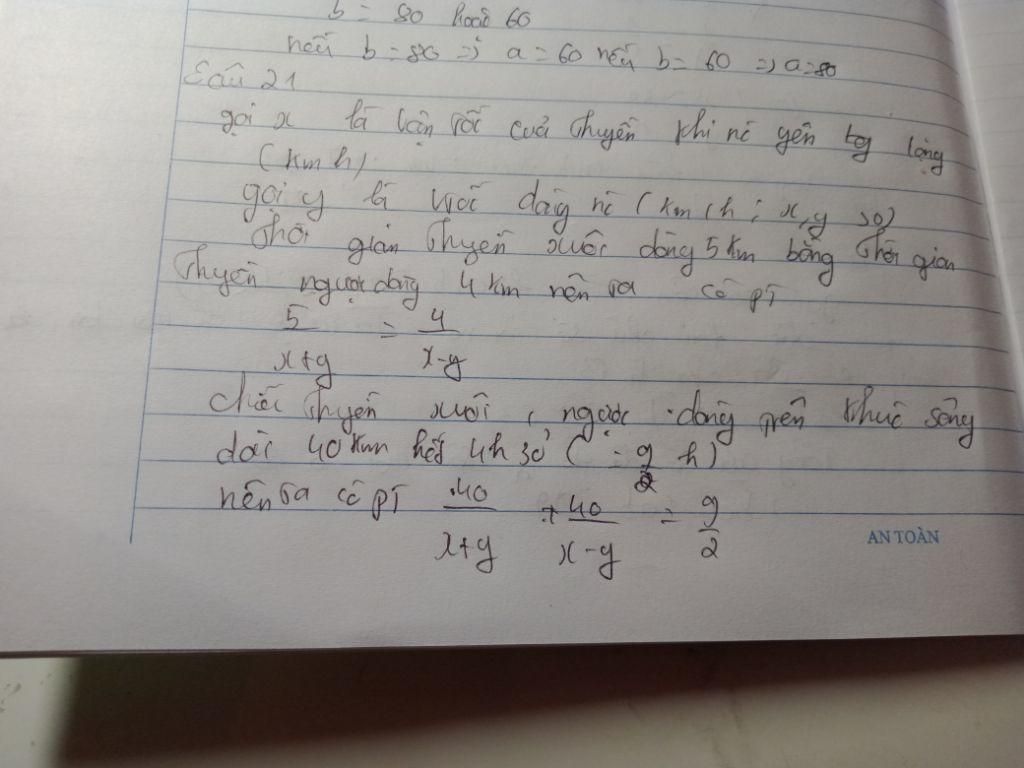 b = 80 hoặc 60
nếu b = 80 => a = 60 nếu b = 60 => a = 80
Câu 21
gọi x là vận tốc của thuyền khi nc yên lặng
(km h)
gọi y là vtốc dòng nc (km/h ; x,y >0)
Thời gian thuyền xuôi dòng 5 km bằng thời gian
thuyền ngược dòng 4 km nên ta có pt
5/(x+y) = 4/(x-y)
thuyền xuôi, ngược dòng trên khúc sông
dài 40 km hết 4h 30' (= 9/2 h)
nên ta có pt 40/(x+y) + 40/(x-y) = 9/2
AN TOÀN